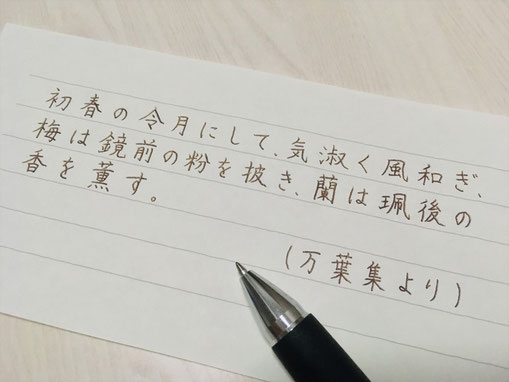 初春の令月にして、気淑く風和ぎ、
梅は鏡前の粉を披き、蘭は珮後の
香を薫す。
(万葉集より)